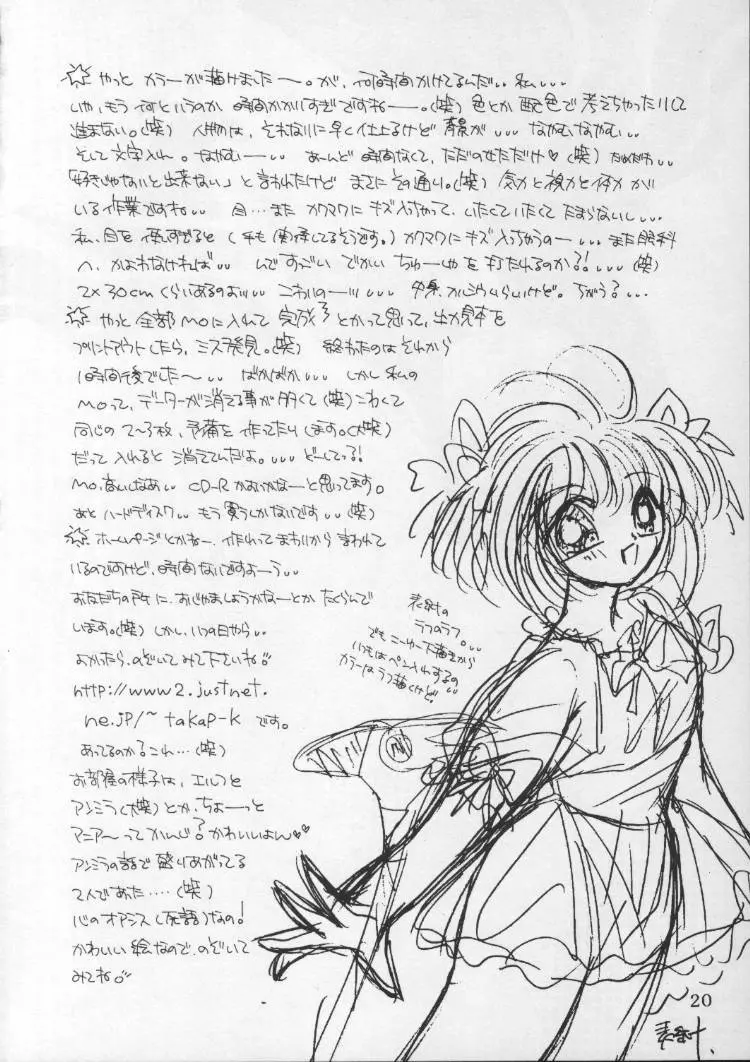 ☆やっと カラーが描けました〜。が、何時間かけてるんだ‥私‥‥
いや、もう何というのか 時間かかりすぎですねー。(笑) 色とか 配色で 考えちゃったりして
進まない。(笑) 人物は、それなりに早く仕上るけど 背景が‥‥ なかむなかむ‥
そして文字入れ。なかむー‥ あーんど 時間なくて、ただのせただけ♡(笑) だめだわ‥
「好きじゃないと出来ない」と言われたけど まさにその通り。(笑) 気力と視力と体力が
いる作業ですね‥ 目…また カクマクに キズ入っちゃって、いたくていたくて たまらないし‥‥
私、目を使いすぎると (手も関係してるそうです。) カクマクにキズ入っちゃうのー‥‥また眼科
へ、かよわなければ‥ んですっごい でかい ちゅーしゃを 打たれるのか?!‥‥(笑)
2×30cmくらいあるのぉ‥‥ こわいのー‥‥ ちがう?‥‥
☆やっと 全部 MOに入れて 完成♪とかって思って、出力見本を
プリントアウトしたら、ミス発見。(笑) 終わったのは それから
1時間後でした〜‥ ばかばか‥‥ しかし 私の
MOって、データーが消える事が多くて(笑)こわくて
同じの 2〜3枚、予備を作ってたりします。(大笑)
だって 入れると 消えてんだよ。‥‥どーしてっ?!
MO、高いしなあ‥ CD-R かおうかなーと思ってます。
あと ハードディスク‥ もう買うしかないです‥(笑)
☆ホームページとかねー、作れってまわりから言われて
いるのですけど、時間ないですよーう‥
お友だちの所に、おじゃましようかなーとか たくらんで
います。(笑) しかし、いつの日やら‥
よかったら、のぞいてみて下さいね♡
http://www2.justnet.
ne.jp/~takap-k です。
あってるのかな これ…(笑)
お部屋の様子は、エルフと
アンミラ(大笑)とか、ちょーっと
マニア〜って かんじ? かわいいよん♡♡
アンミラの話で 盛りあがってる
2人であった‥‥(笑)
心のオアシス(死語)なの!
かわいい絵なので、のぞいて
みてね♡
表紙の
ラフのラフ。‥‥
でもこーゆー下描きから
いつもはペン入れするの‥
カラーはラフ描くけど。
20